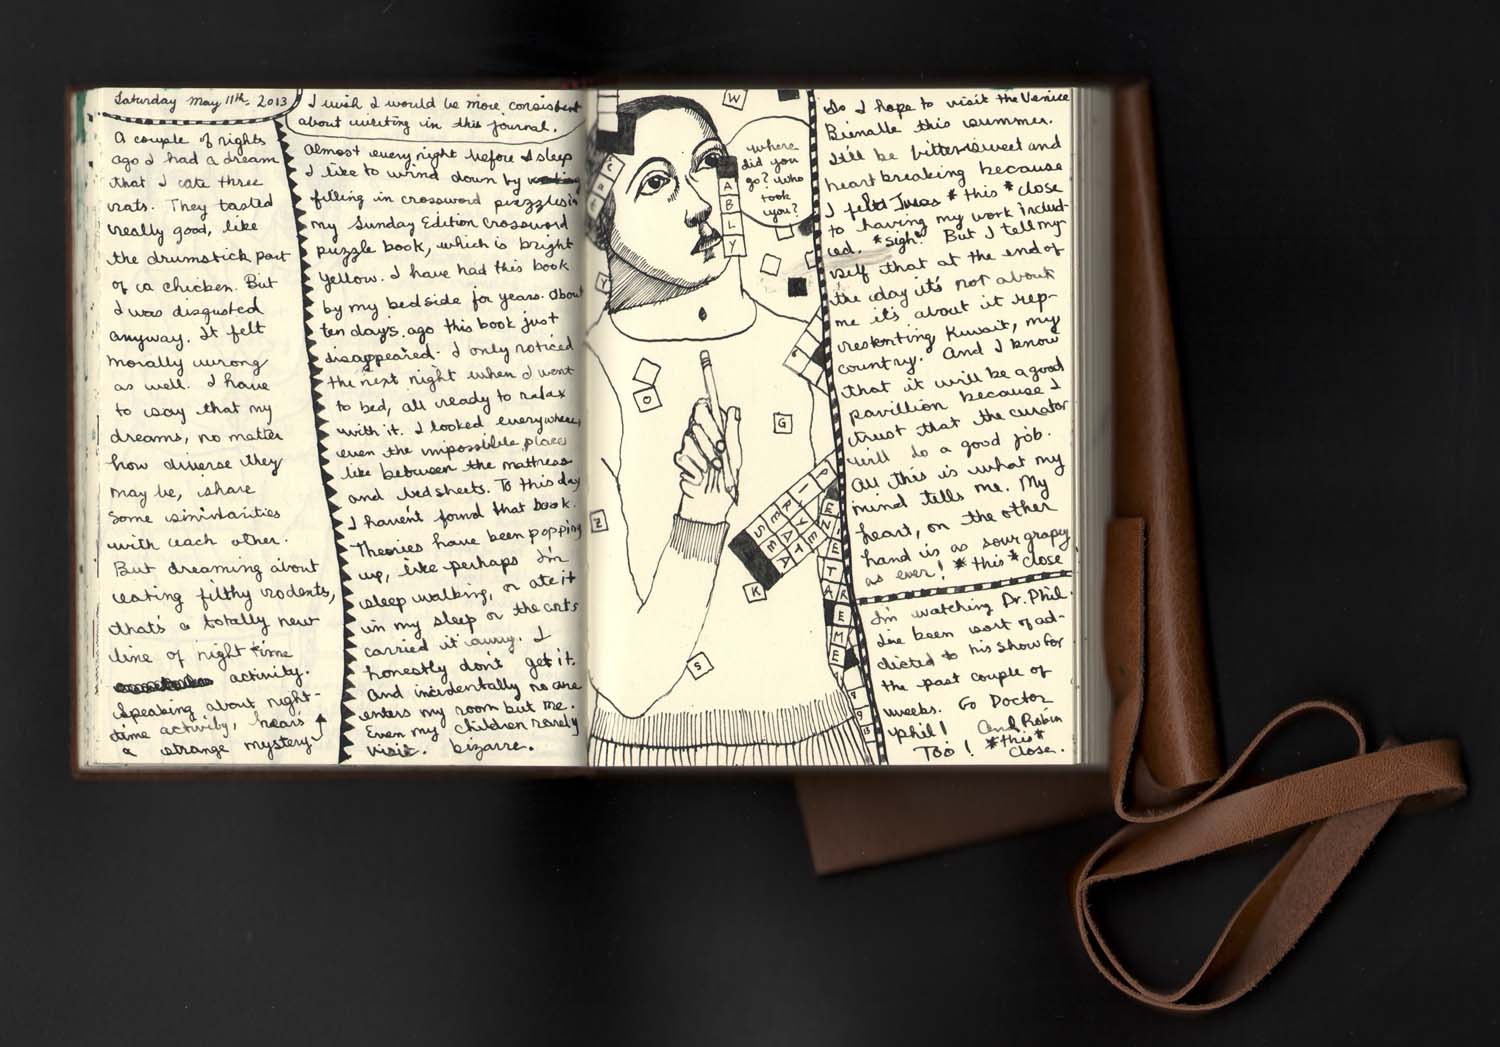 Saturday May 11th, 2013
A couple of nights
ago I had a dream
that I ate three
rats. They tasted
really good, like
the drumstick part
of a chicken. But
I was disgusted
anyway. It felt
morally wrong
as well. I have
to say that my
dreams, no matter
how diverse they
may be, share
some similarities
with each other.
But dreaming about
eating filthy rodents,
that's a totally new
line of night time
activity.
Speaking about night-
time activity, hears
a strange mystery
I wish I would be more consistent
about writing in this journal.
Almost every night before I sleep
I like to wind down by
filling in crossword puzzles in
my Sunday Edition Crossword
puzzle book, which is bright
yellow. I have had this book
by my bedside for years. About
ten days ago this book just
disappeared. I only noticed
the next night when I went
to bed, all ready to relax
with it. I looked everywhere,
even the impossible places
like between the mattress
and bedsheets. To this day
I haven't found that book.
Theories have been popping
up, like perhaps I'm
sleep walking, or ate it
in my sleep or the ants
carried it away. I
honestly don't get it.
And incidentally no one
enters my room but me.
Even my children rarely
visit. bizarre.
W
where
did you
go? who
took
you?
A
B
L
Y
Y
O
G
Z
K
S
So I hope to visit the Venice
Bienalle this summer.
It'll be bittersweet and
heartbreaking because
I felt I was *this* close
to having my work includ-
ed. *sigh* But I tell my-
self that at the end of
the day it's not about
me it's about it rep-
resenting Kuwait, my
country. And I know
that it will be a good
pavillion because I
trust that the curator
will do a good job.
All this is what my
mind tells me. My
heart, on the other
hand is as sour grapey
as ever! *this* close
I'm watching Dr. Phil.
I've been sort of ad-
dicted to his show for
the past couple of
weeks. Go Doctor
Phil! And Robin
Too! *this*
close.